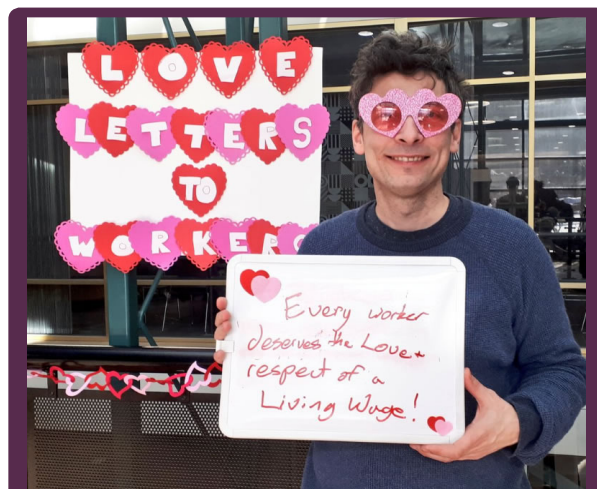 LOVE
LETTERS
TO
WORKERS
Every worker
deserves the Love +
respect of a
Living Wage!